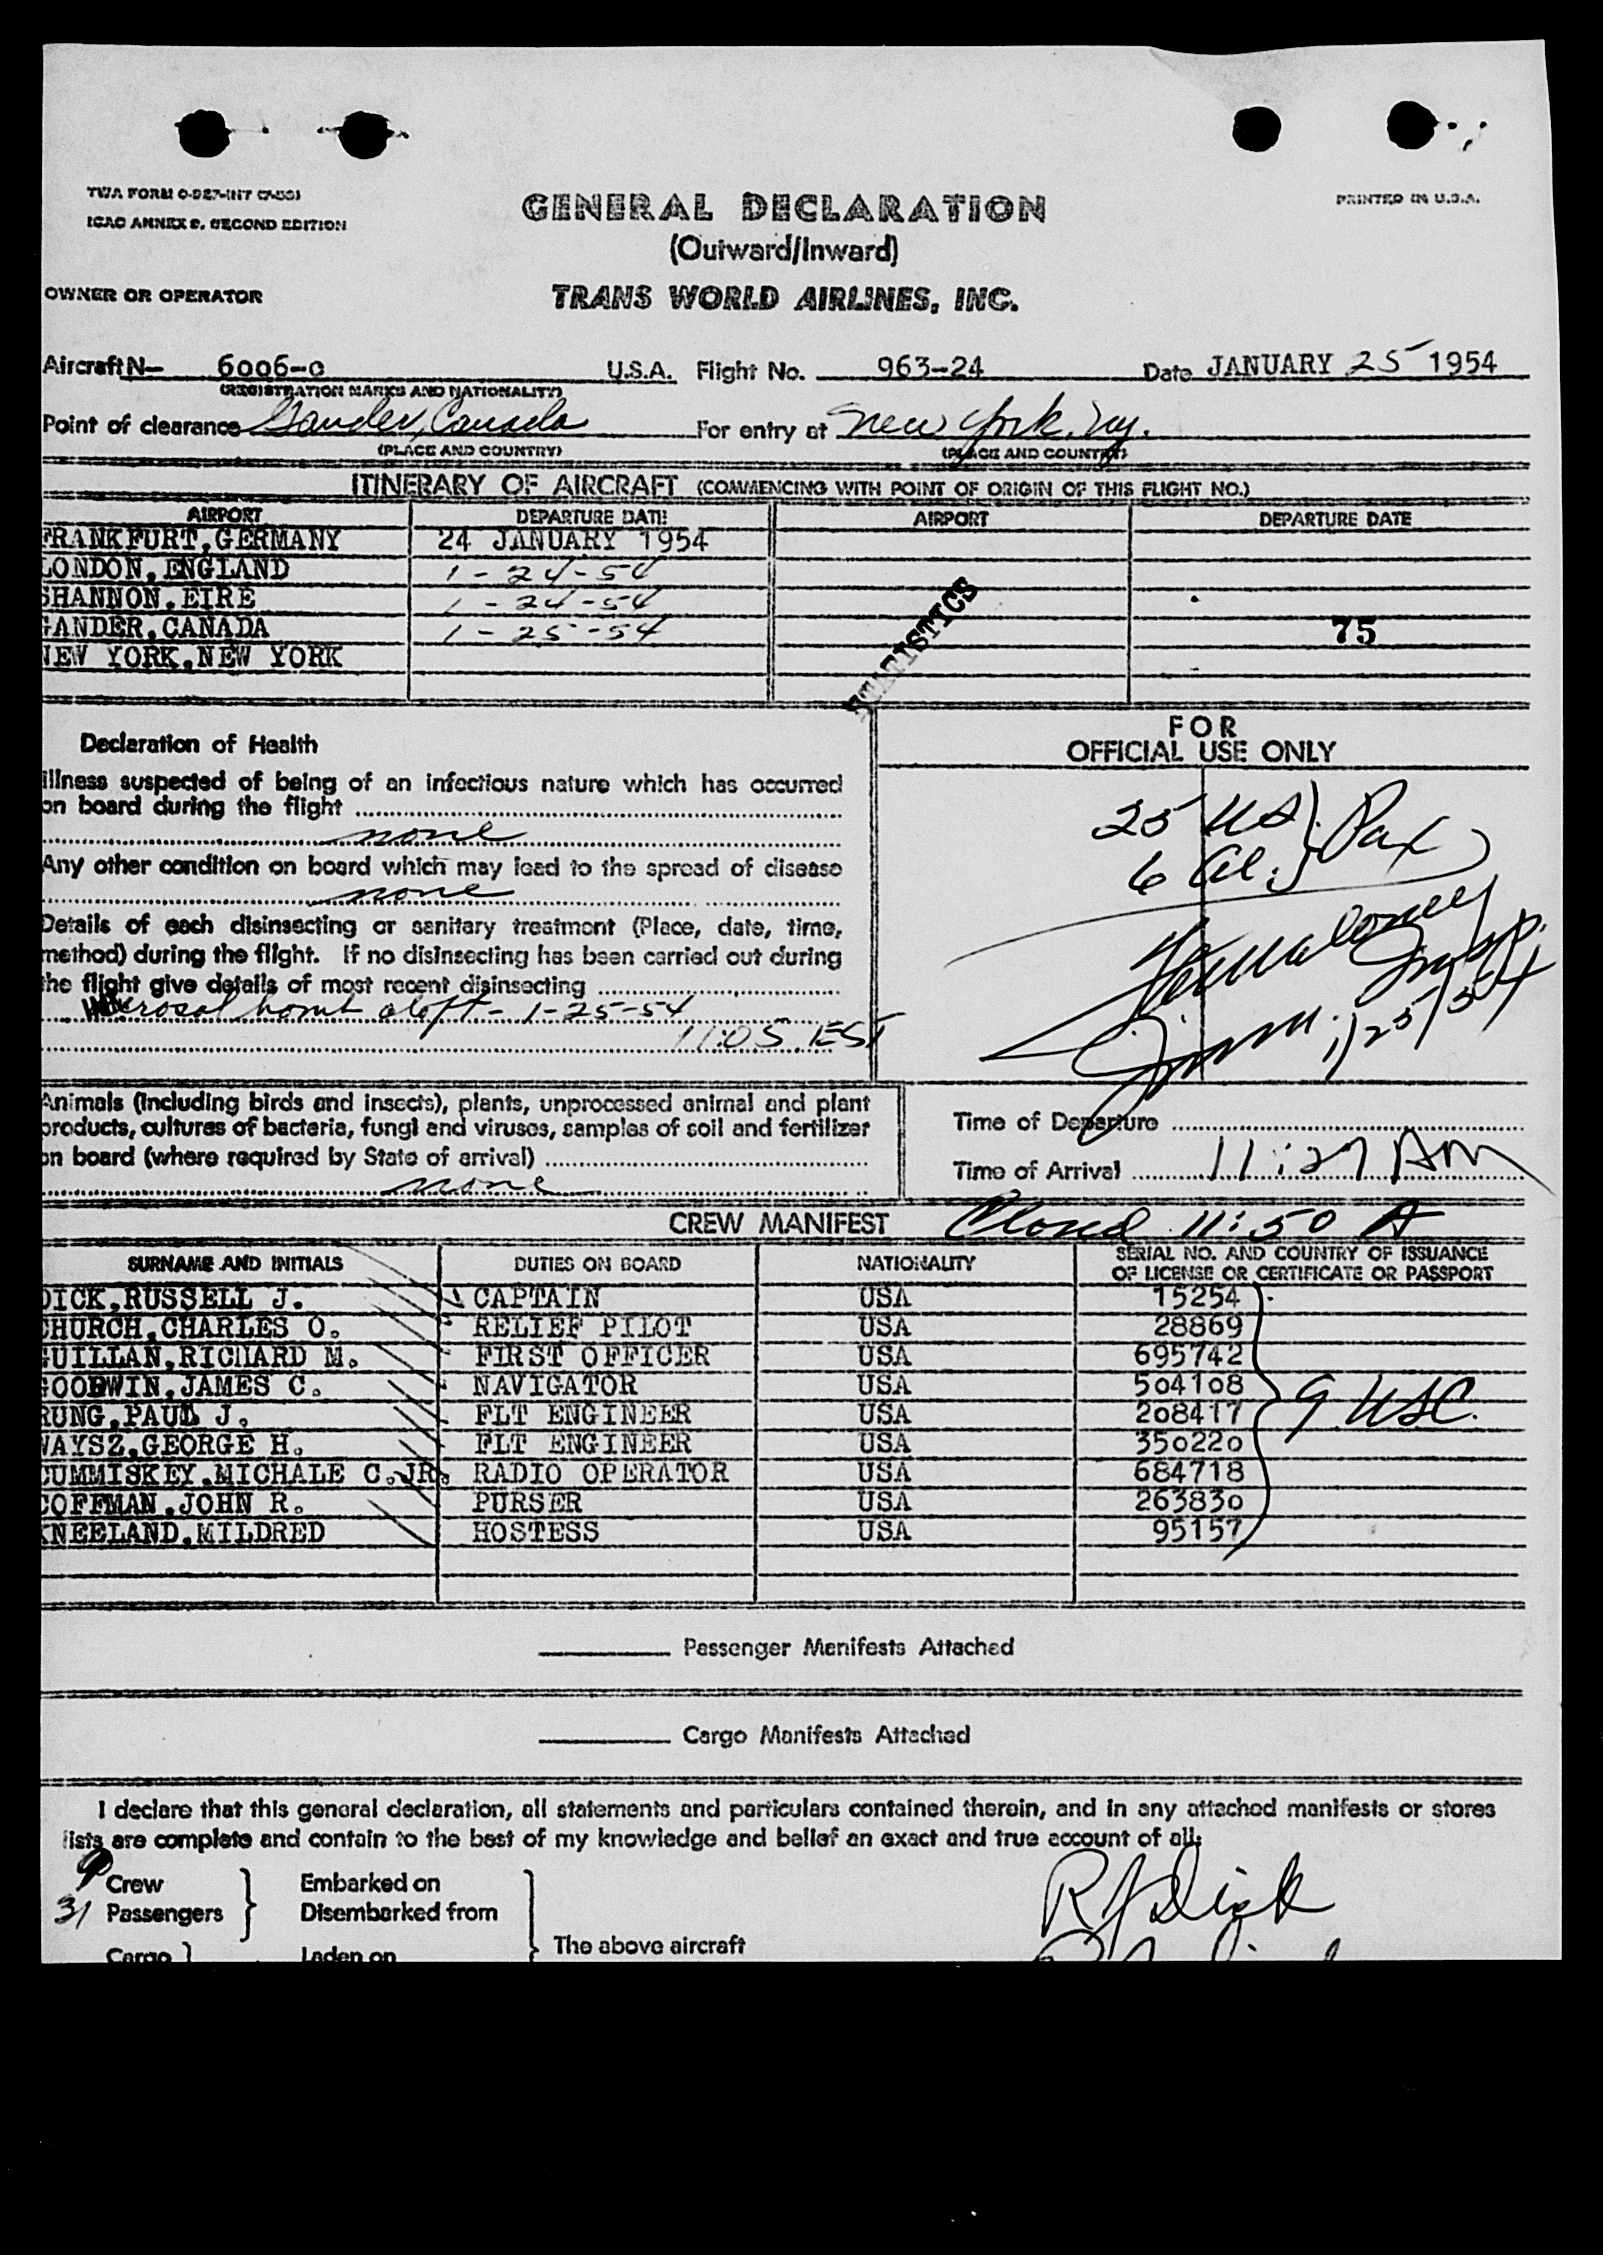 TWA FORM O-927-INT (7-53)
ICAO ANNEX 9, SECOND EDITION
GENERAL DECLARATION
PRINTED IN U.S.A.
(Outward/Inward)
OWNER OR OPERATOR
TRANS WORLD AIRLINES, INC.
Aircraft N- 6006-C U.S.A. Flight No. 963-24 Date JANUARY 25 1954
(REGISTRATION MARKS AND NATIONALITY)
Point of clearance Gander, Canada For entry at New York, N.Y.
(PLACE AND COUNTRY) (PLACE AND COUNTRY)
ITINERARY OF AIRCRAFT (COMMENCING WITH POINT OF ORIGIN OF THIS FLIGHT NO.)
AIRPORT DEPARTURE DATE AIRPORT DEPARTURE DATE
FRANKFURT, GERMANY 24 JANUARY 1954
LONDON, ENGLAND 1-24-54
SHANNON, EIRE 1-24-54
GANDER, CANADA 1-25-54 75
NEW YORK, NEW YORK
STATISTICS
Declaration of Health
illness suspected of being of an infectious nature which has occurred
on board during the flight
none
Any other condition on board which may lead to the spread of disease
none
Details of each disinsecting or sanitary treatment (Place, date, time,
method) during the flight. If no disinsecting has been carried out during
the flight give details of most recent disinsecting
Aerosol bomb aloft - 1-25-54
11:05 EST
FOR
OFFICIAL USE ONLY
25 US } Pax
6 Al.
Insp.
Imm. 1/25/54
Animals (including birds and insects), plants, unprocessed animal and plant
products, cultures of bacteria, fungi and viruses, samples of soil and fertilizer
on board (where required by State of arrival)
none
Time of Departure
Time of Arrival 11:27 AM
CREW MANIFEST Closed 11:50 A
SURNAME AND INITIALS DUTIES ON BOARD NATIONALITY SERIAL NO. AND COUNTRY OF ISSUANCE
OF LICENSE OR CERTIFICATE OR PASSPORT
DICK, RUSSELL J. CAPTAIN USA 15254
CHURCH, CHARLES O. RELIEF PILOT USA 28869
GUILLAN, RICHARD M. FIRST OFFICER USA 695742
GOODWIN, JAMES C. NAVIGATOR USA 504108
RUNG, PAUL J. FLT ENGINEER USA 208417 9 USC.
WAYSZ, GEORGE H. FLT ENGINEER USA 350220
CUMMISKEY, MICHALE C. JR. RADIO OPERATOR USA 684718
COFFMAN, JOHN R. PURSER USA 263830
KNEELAND, MILDRED HOSTESS USA 95157
Passenger Manifests Attached
Cargo Manifests Attached
I declare that this general declaration, all statements and particulars contained therein, and in any attached manifests or stores
lists are complete and contain to the best of my knowledge and belief an exact and true account of all:
9 Crew Embarked on
31 Passengers Disembarked from
R J Dick
The above aircraft
Cargo Laden on